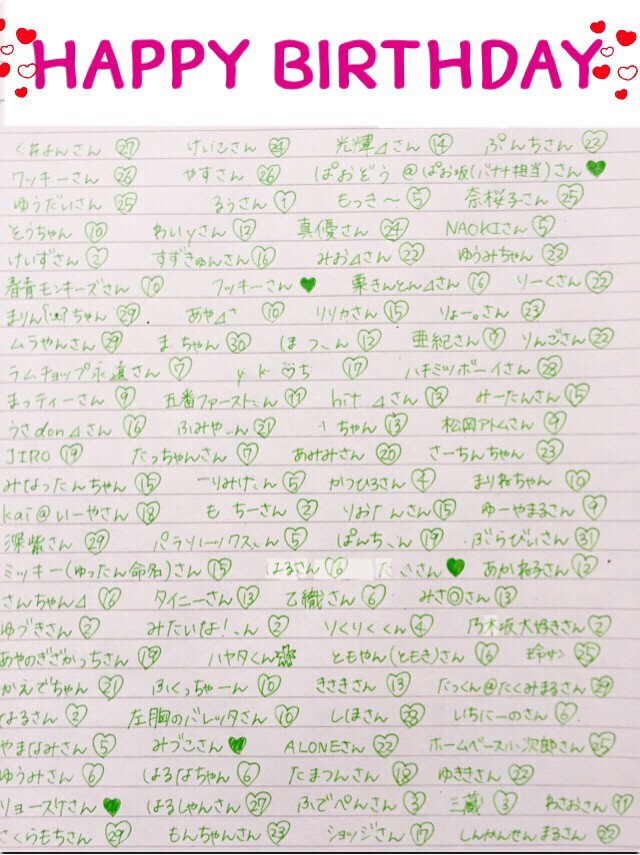 HAPPY BIRTHDAY
くれよんさん 27 けいこさん 24 光輝⊿さん 14 ぷんちさん 23
ワッキーさん 26 やすさん 26 ぱおどう @ぱお坂(バナナ担当)さん ♥
ゆうだいさん 25 るうさん 1 もっき〜 5 奈桜子さん 25
とうちゃん 10 わいyさん 12 真優さん 24 NAOKIさん 5
けいずさん 2 すずきゅんさん 16 みお⊿さん 22 ゆうみちゃん 22
春青モンキーズさん 10 フッキーさん ♥ 栗きんとん⊿さん 16 りーくさん 22
まりんちゃん 29 あや⊿さ 10 リリカさん 15 りょー。さん 23
ムラやんさん 29 ま ちゃん 30 ほ つ ん 12 亜紀さん 7 りんごさん 22
ラムチョップ永遠さん 7 y k ♡ち 17 ハチミツボーイさん 28
まっティーさん 9 五番ファースト ん 11 hit ⊿さん 13 みーたんさん 15
うさdon⊿さん 16 ふみや ん 21 ちゃん 13 松岡アトムさん 9
JIRO 19 たっちゃんさん 7 あみみさん 20 さーちんちゃん 23
みなったんちゃん 15 りみけ ん 5 かつひろさん 4 まりねちゃん 10
kai@いーやさん 18 も ちーさん 2 りおた んさん 15 ゆーやまるさん 9
深紫さん 29 パラソ ックス ん 5 ぱんち ん 19 ぶらびぃさん 31
ミッキー(ゆったん命名)さん 15 はるさん 16 た きさん ♥ あかね子さん 12
さんちゃん⊿ 16 タイニーさん 13 乙織さん 6 みさ◎さん 13
ゆづきさん 2 みたいな! ん 2 りくりくくん 4 乃木坂大好きさん 2
あやのぎざかっちさん 19 ハヤタくん ともやん(ともき)さん 16 玲サン 25
かえでちゃん 21 ふくっちゃーん 10 きさきさん 13 たっくん@たくみまるさん 29
はるさん 2 左胸のバレッタさん 10 しほさん 28 いちにーのさん 6
やまなみさん 5 みづこさん ♥ ALONEさん 22 ホームベース小次郎さん 25
ゆうみさん 6 はるなちゃん 6 たまつんさん 18 ゆききさん 22
リョースケさん ♥ はるしゃんさん 27 ふでぺんさん 3 三蔵 3 わさおさん 11
さくらもちさん 29 もんちゃんさん 23 ショッジさん 17 しんかんせんまるさん 22